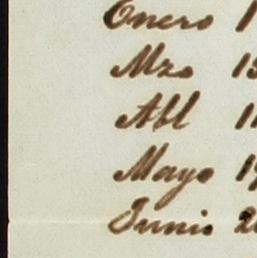 Enero 1
Mzo 15
Abl 11
Mayo 19
Junio 2